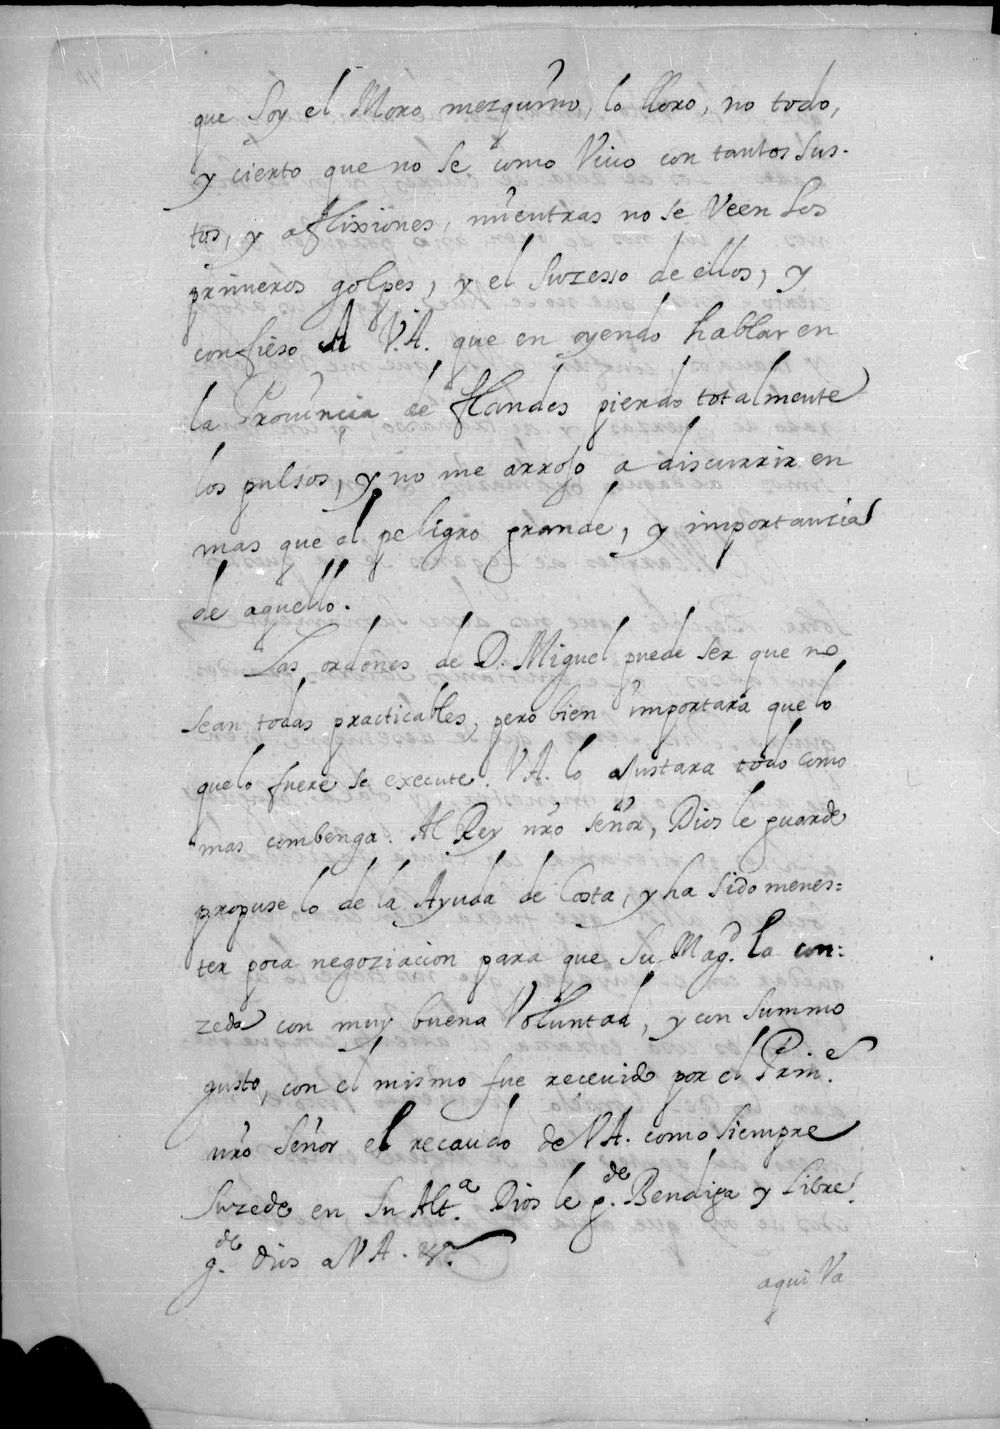 que soy el Moro mezquino, lo lloro, no todo,
y cierto que no se como Vivo con tantos sus-
tos, y aflixiones, mientras no se Veen los
primeros golpes, y el suzesso de ellos, y
confieso A V.A. que en oyendo hablar en
la Provincia de flandes pierdo totalmente
los pulsos, y no me arrojo a discurrir en
mas que el peligro grande, y importancia
de aquello.
Las ordenes de D. Miguel puede ser que no
sean todas practicables, pero bien importara que lo
que lo fuere se execute. V.A. lo ajustara todo como
mas combenga. Al Rey nro señor, Dios le guarde
propuse lo de la Ayuda de Costa, y ha sido menes=
ter poca negoziacion para que Su Magd. la con=
zeda con muy buena Voluntad, y con summo
gusto, con el mismo fue receuido por el Prine.
nro señor el recaudo de V.A. como siempre
suzede en su Alta. Dios le gde. Bendiga y libre.
gde. dios a V.A. &c.
aqui Va